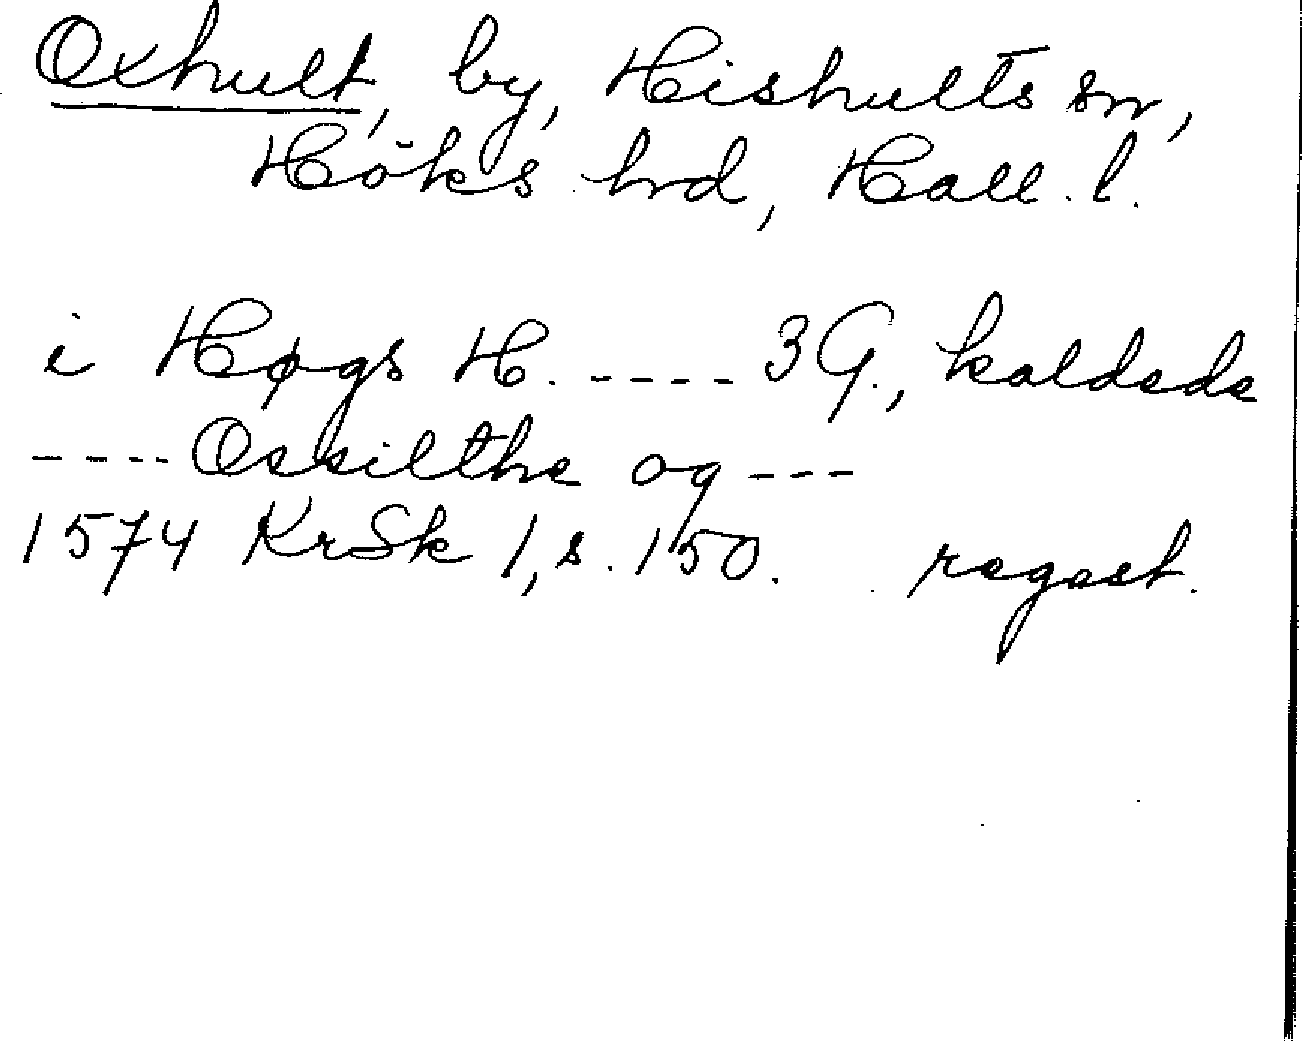 Oxhult, by, Hishults sn,
Höks hrd, Hall. l.
i Høgs H. ----- 3 G., kaldede
---- Ossilthe og ---
1574 KrSk 1, s. 150. regest.